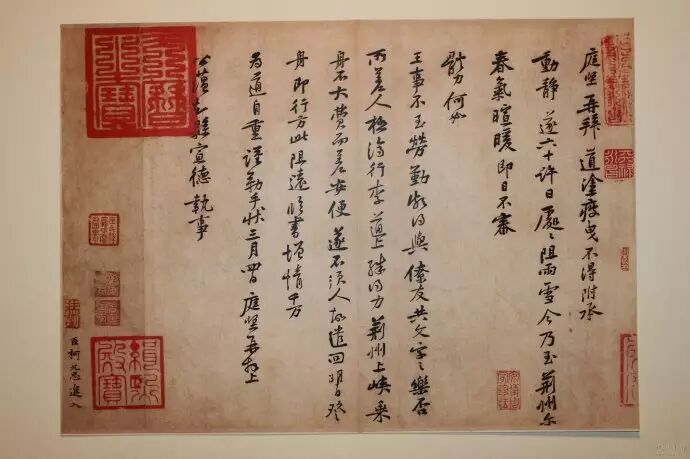 庭堅再拜道塗疲曳不得附承
動靜遂六十許日處〻阻雨雪今乃至荊州尔
春氣暄暖即日不審
體力何如
王事不至勞勤頗得與僚友共文字之樂否
所差人極濟行李道上殊得力荊州上峽乘
舟不大費而差安便遂不須人故遣回明日登
舟即行方此阻遠臨書增情千万
為道自重謹勒手狀三月四日庭堅再拜上
公蘊知縣宣德執事
臣柯九思進入